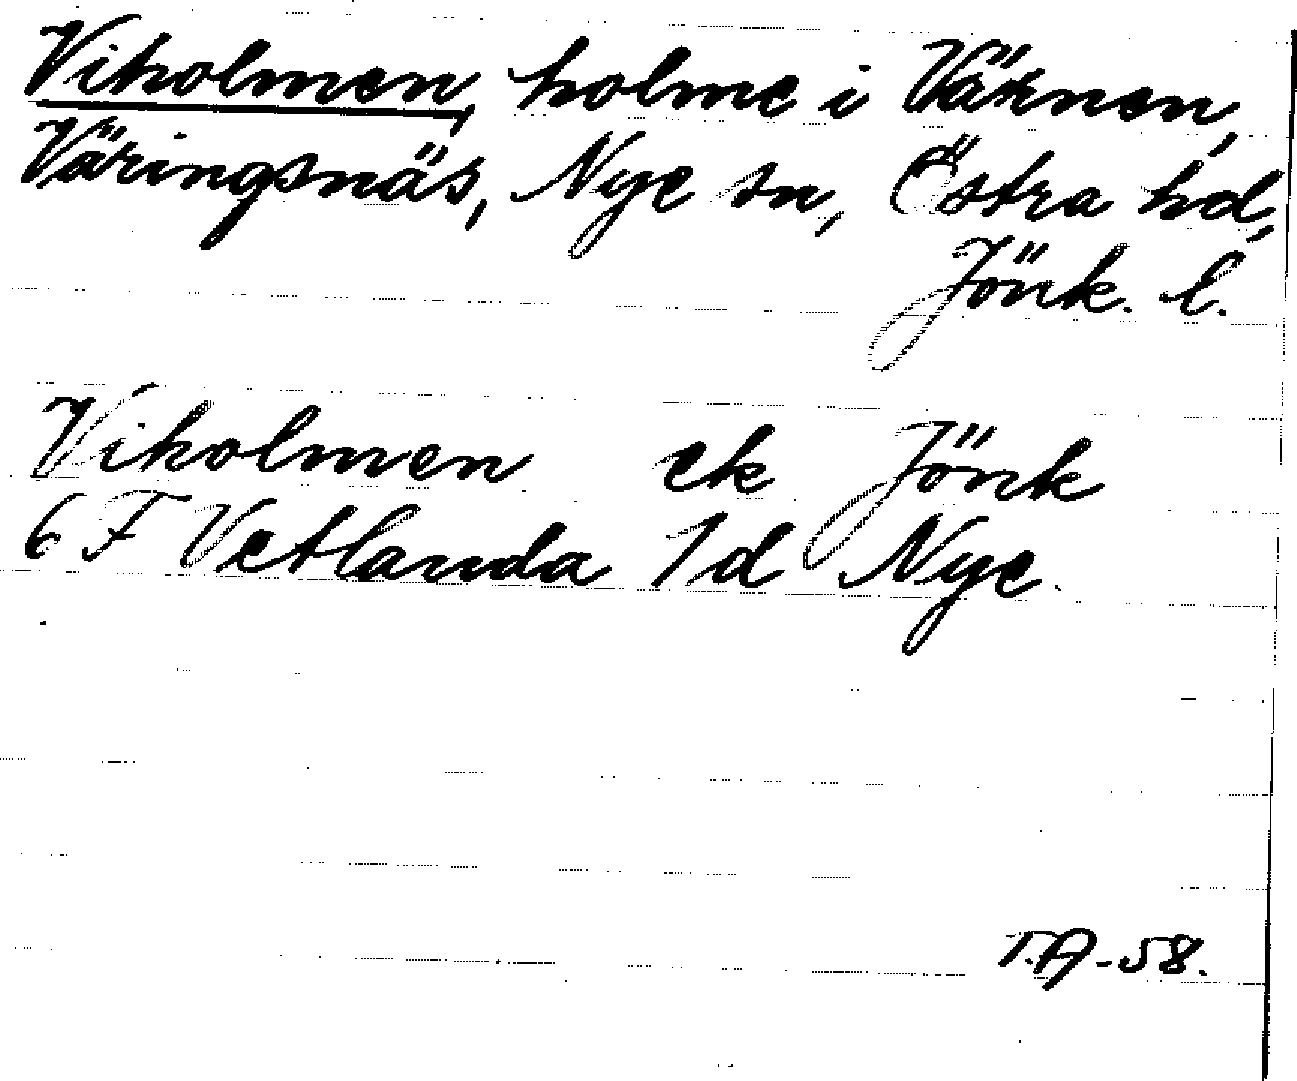 Vikolmen, holme i Värnen,
Väringsnäs, Nye sn, Östra hd,
Jönk. l.
Vikolmen ek Jönk
6 F Vetlanda 1d Nye.
T.A-58.